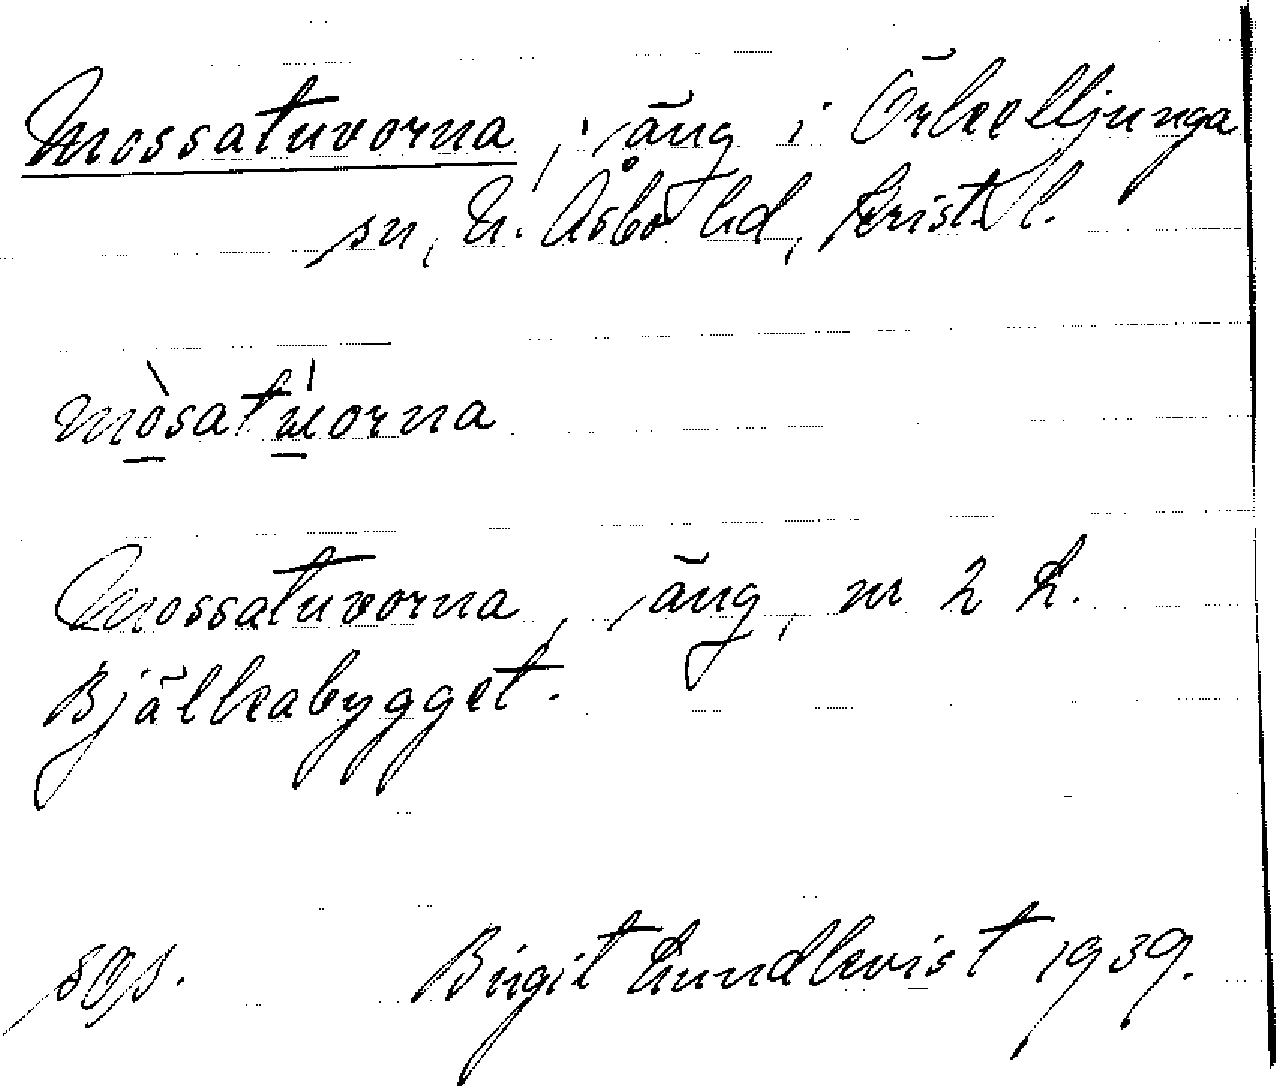 Mossatuvorna, äng i Örkelljunga
sn, N. Åsbo hd, Krist. l.
mòsatúorna
Mossatuvorna, äng, nr 2 L.
Bjälkabygget.
sgs. Birgit Lundkvist 1939.